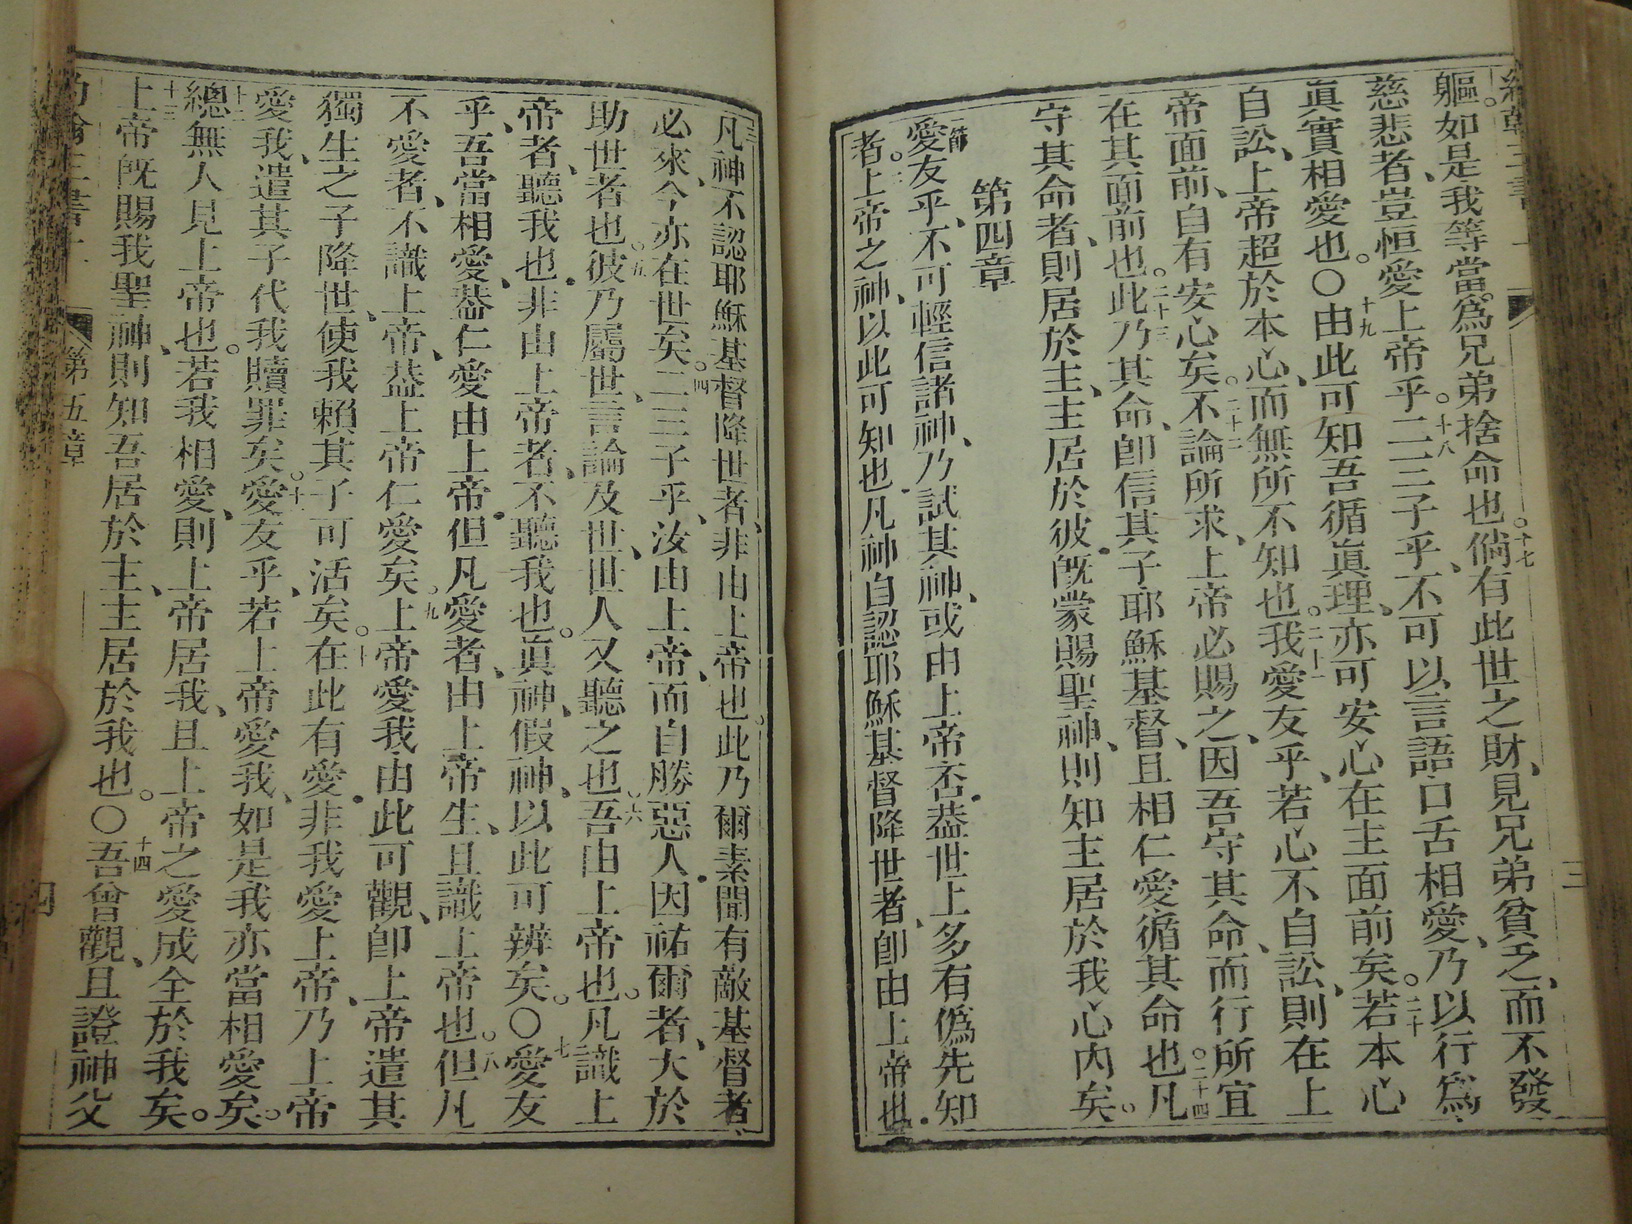 軀如是、我等當爲兄弟捨命也。十七倘有此世之財、見兄弟貧乏、而不發
慈悲者、豈恒愛上帝乎。十八二三子乎、不可以言語口舌相愛、乃以行爲、
眞實相愛也。○十九由此可知吾循眞理、亦可安心在主面前矣。二十若本心
自訟、上帝超於本心、而無所不知也。二十一我愛友乎、若心不自訟、則在上
帝面前、自有安心矣。二十二不論所求、上帝必賜之、因吾守其命、而行所宜
在其面前也。二十三此乃其命、卽信其子耶穌基督、且相仁愛、循其命也。二十四凡
守其命者、則居於主、主居於彼。旣蒙賜聖神、則知主居於我心內矣。
第四章
一節愛友乎、不可輕信諸神、乃試其神、或由上帝否。葢世上多有僞先知
者。二上帝之神、以此可知也。凡神自認耶穌基督降世者、卽由上帝也。
三凡神不認耶穌基督降世者、非由上帝也。此乃爾素聞有敵基督者、
必來、今亦在世矣。四二三子乎、汝由上帝、而自勝惡人。因祐爾者、大於
助世者也。五彼乃屬世、言論及世、世人又聽之也。六吾由上帝也。凡識上
帝者、聽我也。非由上帝者、不聽我也。眞神、假神、以此可辨矣。○七愛友
乎、吾當相愛、葢仁愛由上帝。但凡愛者、由上帝生、且識上帝也。八但凡
不愛者、不識上帝、葢上帝仁愛矣。九上帝愛我、由此可觀、卽上帝遣其
獨生之子降世、使我賴其子可活矣。十在此有愛。非我愛上帝、乃上帝
愛我、遣其子代我贖罪矣。十一愛友乎、若上帝愛我、如是我亦當相愛矣。
十二總無人見上帝也。若我相愛、則上帝居我、且上帝之愛成全於我矣。
十三上帝旣賜我聖神、則知吾居於主、主居於我也。○十四吾曾觀、且證神父
第五章
四
三